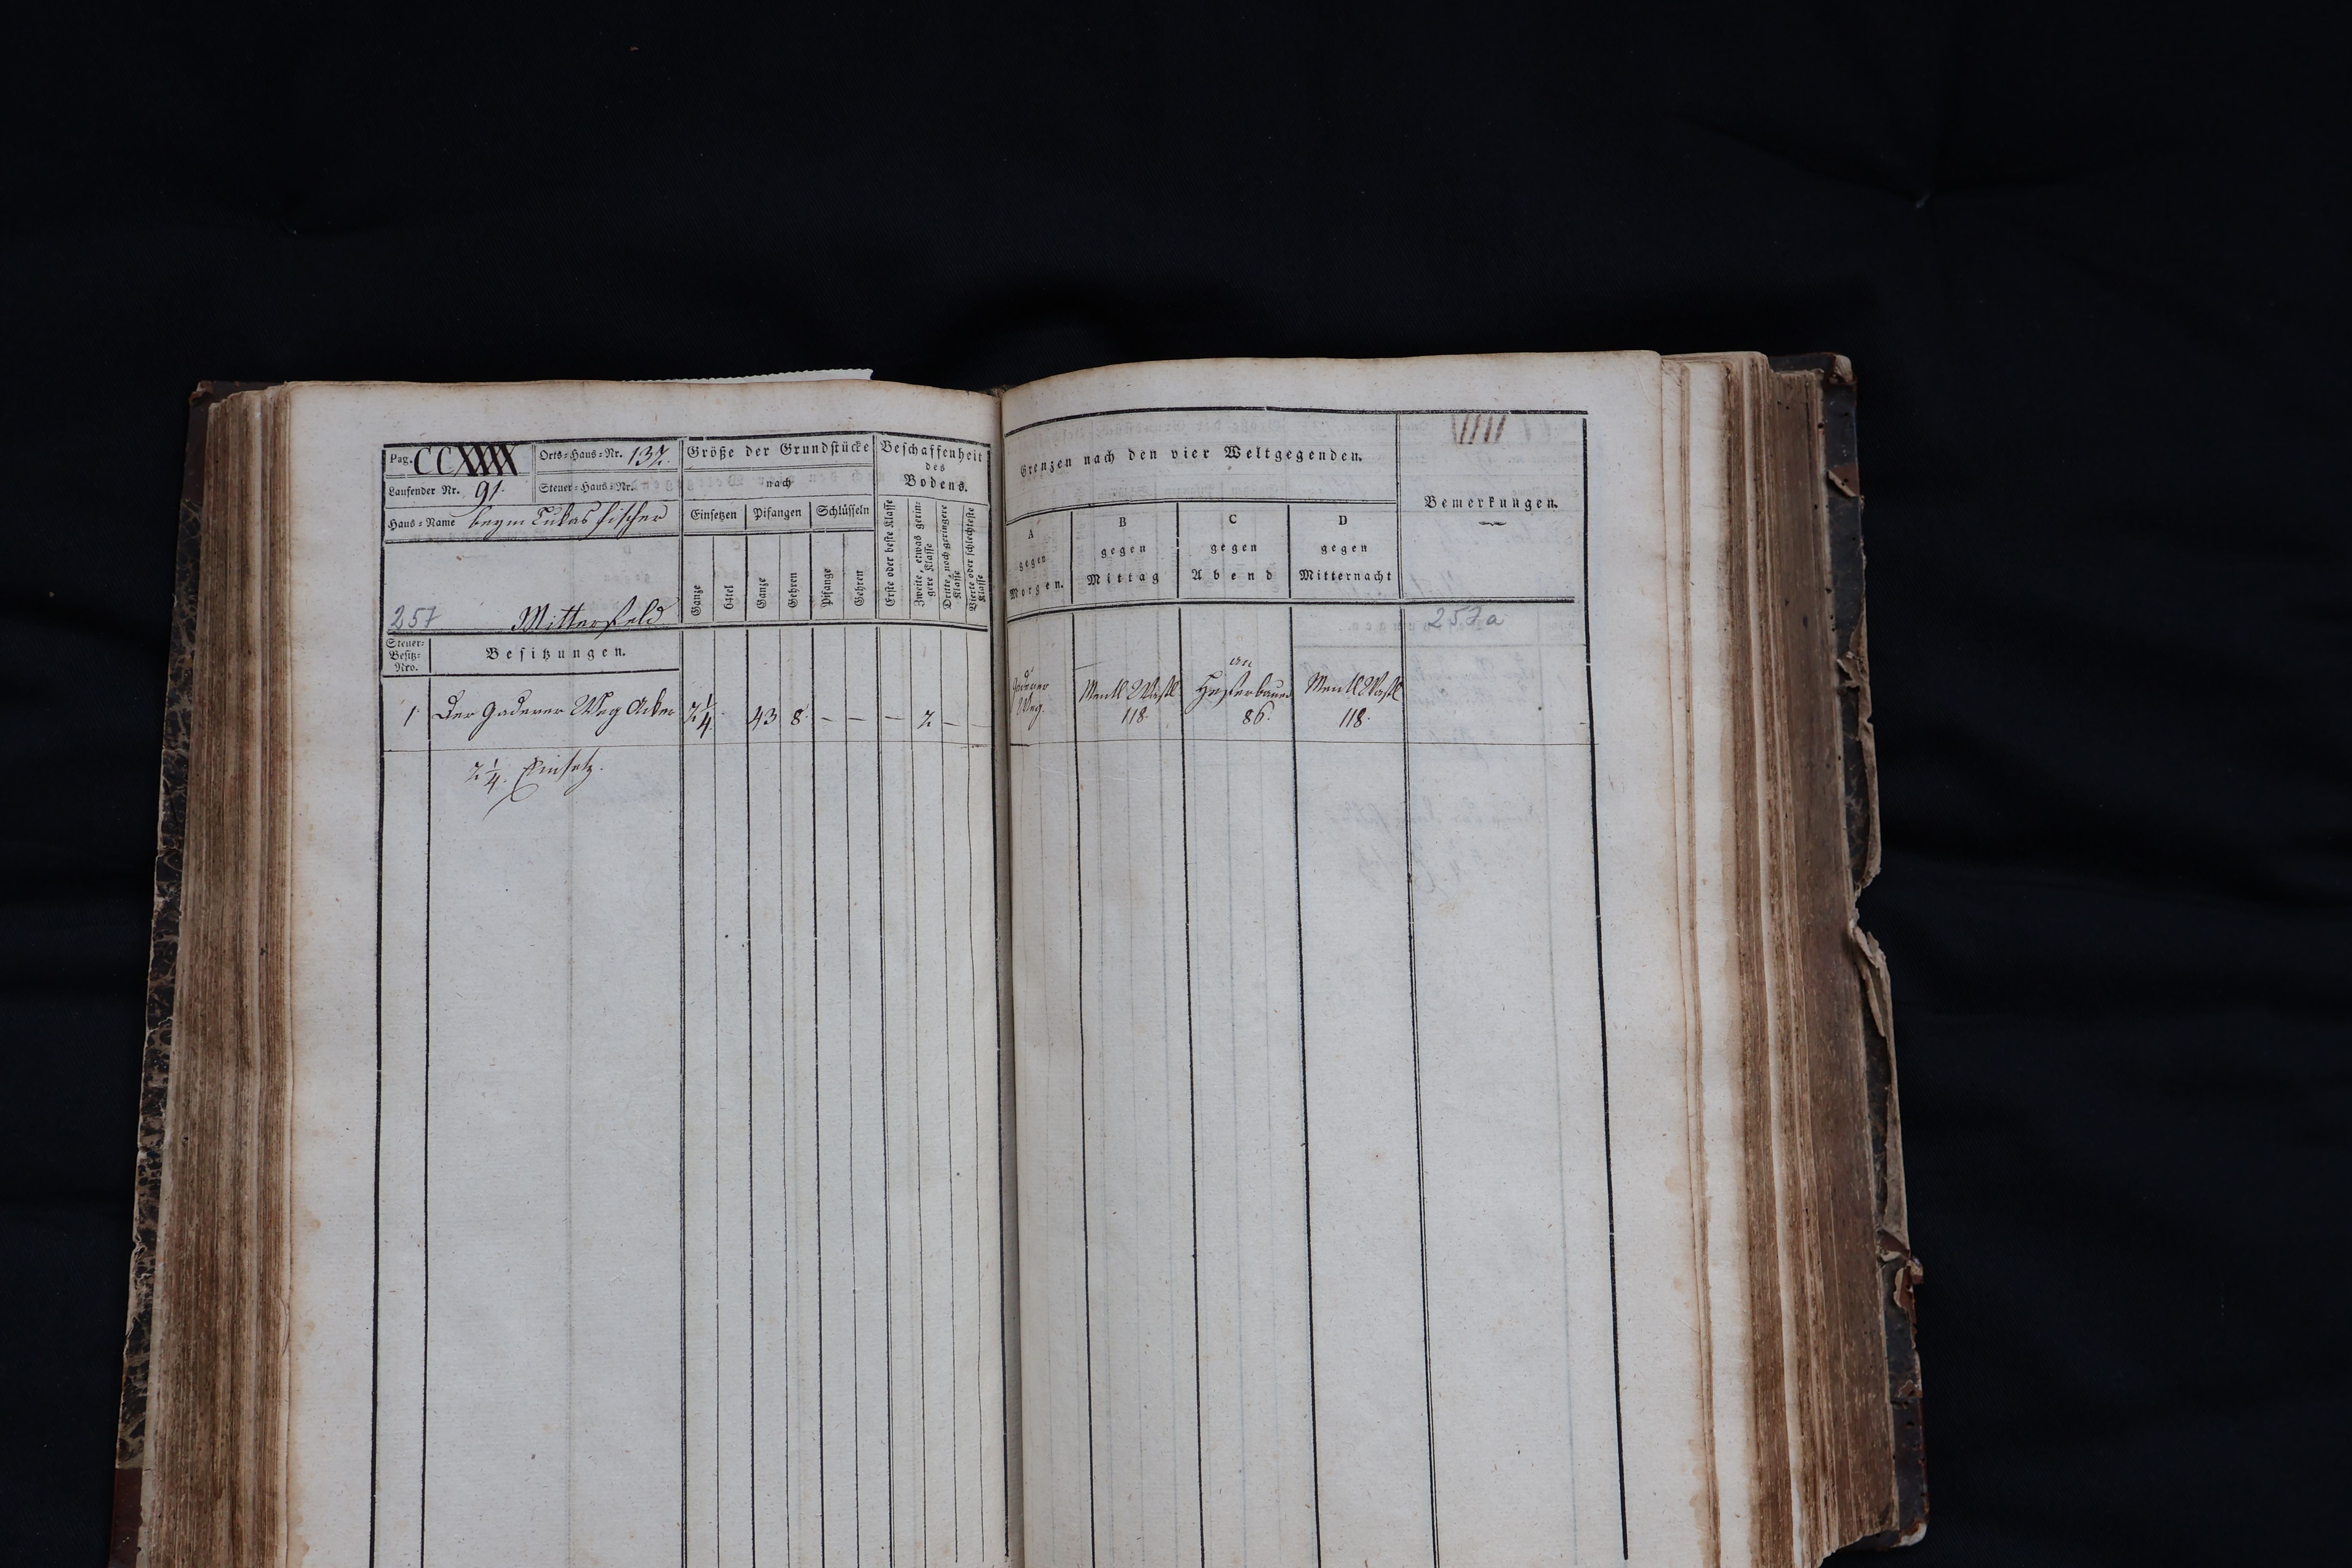 Pag. CCXXXX Orts=Haus=Nr. 137.
Laufender Nr. 91. Steuer=Haus=Nr.
Haus=Name beym Lukas fischer
257 Mitterfeld
Steuer=Besitz=Nro.
Besitzungen.
Größe der Grundstücke
nach
Einsetzen Pifangen Schlüsseln
Ganze
64tel
Ganze
Gehren
Pifange
Gehren
Beschaffenheit
des
Bodens.
Erste oder beste Klasse
Zweite, etwas gerin=
gere Klasse
Dritte, noch geringere
Klasse
Vierte oder schlechteste
Klasse
Grenzen nach den vier Weltgegenden.
A
gegen
Morgen.
B
gegen
Mittag
C
gegen
Abend
D
gegen
Mitternacht
Bemerkungen.
257a
1. Der Gaderer Weg Acker 2 1/4. 43 8. – – – 2. – –
Weg.
118.
an
86.
118.
2 1/4. Einsetz.